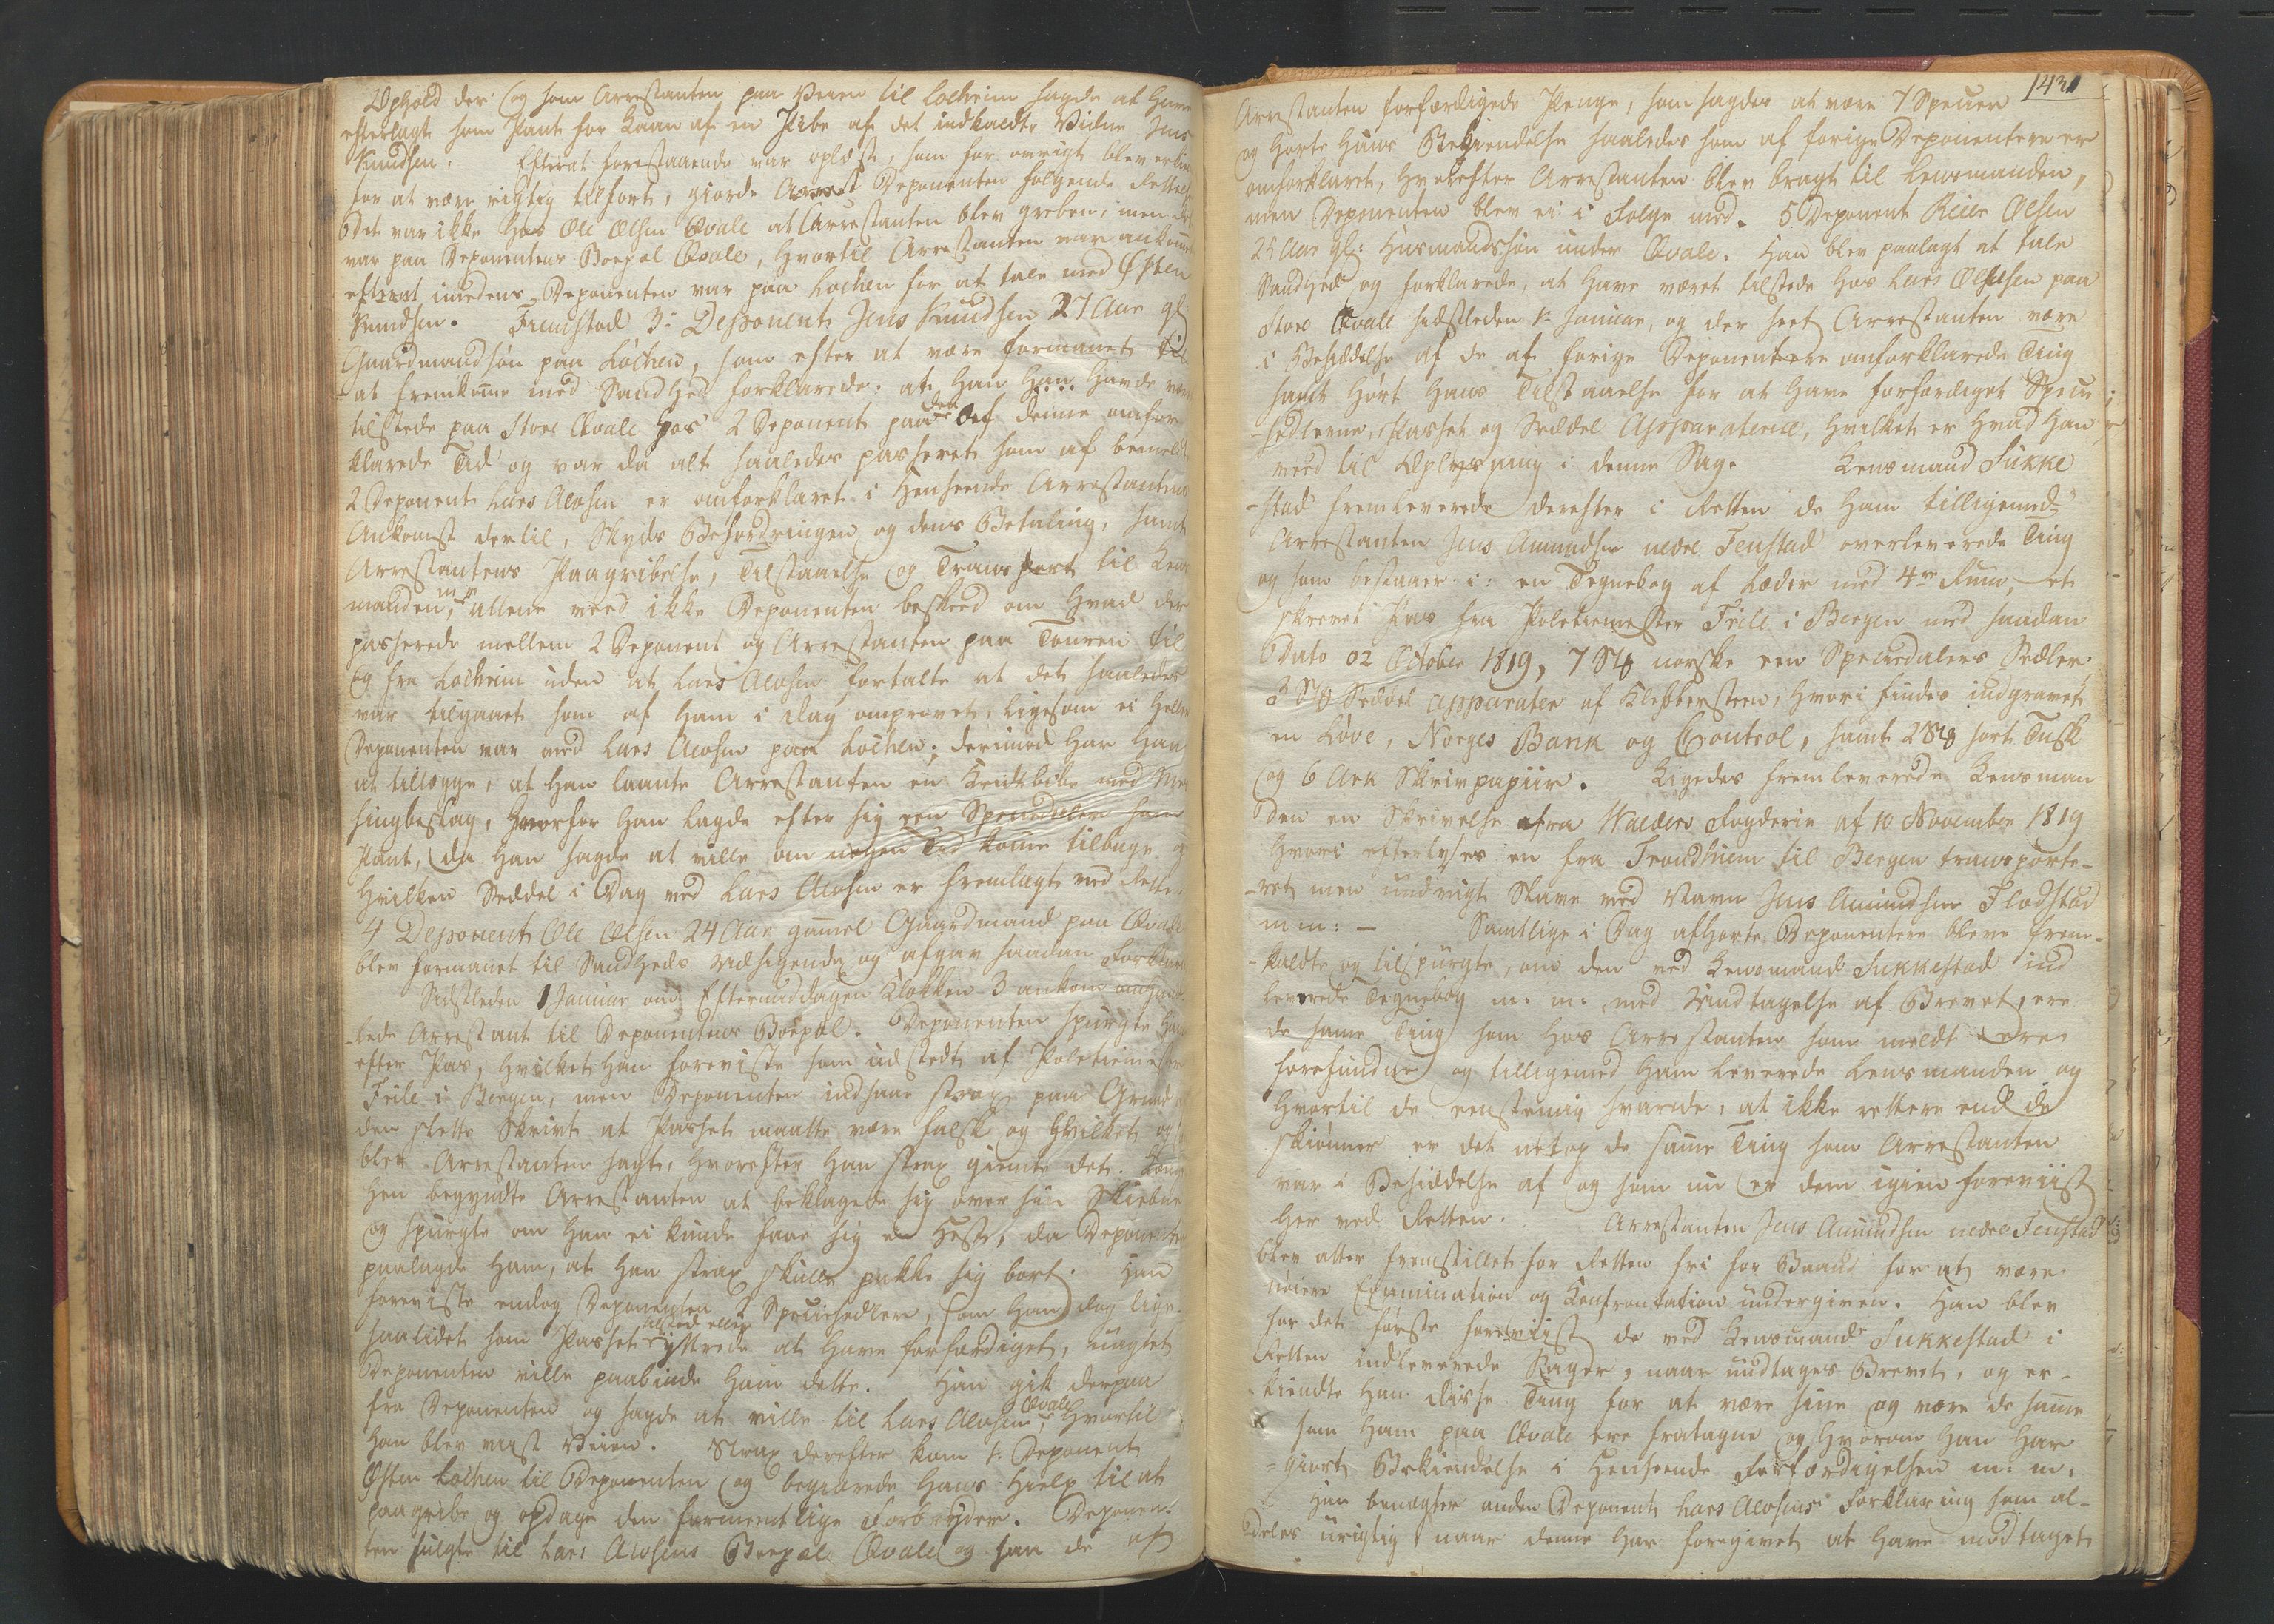 Ophold der og som Arrestanten paa Veien til Lochrim sagde at have
efterlagt som Pant for Laan af en Pibe af det indkaldte Vidne Jens
Knudsen. Efterat forestaaende var oplæst, som for øvrigt blev erkiendt
for at være rigtig tilført, giorde Arrest Deponenten følgende Rettelse
Det var ikke hos Ole Olsen Qvale at Arrestanten blev greben, men det
var paa Deponentens Boepæl Qvale, hvortil Arrestanten var ankommen
efterat imedens Deponenten var paa Lochen for at tale med Østen
Knudsen. Fremstod 3: Deponent Jens Knudsen 27 Aar gl
Gaardmandsøn paa Lochen, som efter at være formanet til
at fremkomme med Sandhed forklarede: at han han havde været
tilstede paa Store Qvale hos 2 Deponent paa den af denne omfor
klarede Tid og var da alt saaledes passeret som af bemeldte
2 Deponent Lars Alosen er omforklaret i Henseende Arrestantens
Ankomst dertil, Skyds Befordringen og dens Betaling, samt
Arrestantens Paagribelse, Tilstaaelse og Transport til Lens
manden, allene veed ikke Deponenten beskeed om hvad der
passerede mellem 2 Deponent og Arrestanten paa Touren til
og fra Lochrim uden at Lars Alosen fortalte at det saaledes
var tilgaaet som af ham i Dag omprovet, ligesom ei heller
Deponenten var med Lars Alosen paa Lochen; derimod har han
at tillægge, at han laante Arrestanten en Kridtbibe med Mes
singbeslag, hvorfor han lagde efter sig een Speciedaler som
Pant, da han sagde at ville om nogen Tid komme tilbage og
hvilken Seddel i Dag ved Lars Alosen er fremlagt ved Retten
4 Deponent Ole Olsen 24 Aar gammel Gaardmand paa Qvale
blev formanet til Sandheds Udsigende og afgav saadan Forklaring
Sidstleden 1 Januar om Eftermiddagen Klokken 3 ankom omhand-
lede Arrestant til Deponentens Boepæl. Deponenten spurgte ham
efter Pas, hvilket han foreviste som udstedt af Politiemester
Feile i Bergen, men Deponenten indsaae strax paa Grund af
den slette Skrivt at Passet maatte være falsk og hvilket og
blev Arrestanten sagt, hvorefter han strax giemte det.
hen begyndte Arrestanten at beklagede sig over sin Skiebne
og spurgte om han ei kunde faae sig en Hest, da Deponenten
paalagde ham, at han strax skulle pakke sig bort. Han
foreviste endog Deponenten 2 Speciesedler, som han dog lige
saalidet som Passet tilstod eller yttrede at have forfærdiget, uagtet
Deponenten ville paabinde ham dette. Han gik derpaa
fra Deponenten og sagde at ville til Lars Alosen Qvale, hvortil
han blev viist Veien. Strax derefter kom 1: Deponent
Østen Lochen til Deponenten og begiærede hans Hielp til at
paagribe og opdage den formeentlige Forbryder. Deponen
ten fulgte til Lars Alosens Boepæl Qvale og saa de af
1431
Arrestanten forfærdigede Penge, som sagdes at være 7 Specier
og hørte hans Bekiendelse saaledes som af forige Deponentere er
omforklaret, hvorefter Arrestanten blev bragt til Lensmanden,
men Deponenten blev ei i Følge med. 5 Deponent Reier Olsen
25 Aar gl: Huusmandssøn under Qvale. Han blev paalagt at tale
Sandhed og forklarede, at have været tilstede hos Lars Olsen paa
Store Qvale sidstleden 1: Januar, og der seet Arrestanten være
i Besiddelse af de af forige Deponentere omforklarede Ting
samt hørt hans Tilstaaelse for at have forfærdiget Specie
sedlerne, Passet og Seddel Apparaterne, hvilket er hvad han
veed til Oplysning i denne Sag. Lensmand Sukke
stad fremleverede derefter i Retten de ham tilligemed
Arrestanten Jens Amundsen nedre Fenstad overleverede Ting
og som bestaaer i: en Tegnebog af Læder med 4re Rum, et
skrevet Pas fra Politiemester Feile i Bergen med saadan
Dato 02 October 1819, 7 Stk norske een Speciedalers Sedler
3 Stk Seddel apparater af Klebbersteen, hvori findes indgravet
en Løve, Norges Bank og Control, samt 2 Stk sort Tusk
og 6 Ark Skrivpapiir. Ligedes fremleverede Lensman
den en Skrivelse fra Walders Fogderie af 10 November 1819
hvori efterlyses en fra Trondhiem til Bergen transporte-
ret men undvigt Slave med Navn Jens Amundsen Flodstad
m m: - Samtlige i Dag afhørte Deponentere bleve frem-
kaldte og tilspurgte, om den ved Lensmand Sukkestad ind
leverede Tegnebog m: m: med Undtagelse af Brevet, ere
de samme Ting som hos Arrestanten som meldt ere
forefundne og tilligemed ham leverede Lensmanden og
hvortil de eenstemig svarede, at ikke rettere end de
skiønner er det netop de samme Ting som Arrestanten
var i Besiddelse af og som nu er dem igien foreviist
her ved Retten. Arrestanten Jens Amundsen nedre Fenstad
blev atter fremstillet for Retten fri for Baand for at være
nøiere Examination og Confrontation undergiven. Han blev
for det første foreviist de ved Lensmand Sukkestad i
Retten indleverede Sager, naar undtages Brevet, og er-
kiendte han disse Ting for at være sine og være de samme
som ham paa Qvale ere fratagne og hvorom han har
giort Bekiendelse i Henseende Forfærdigelsen m: m:
Han benægter anden Deponent Lars Alosens Forklaring som al-
deles urigtig naar denne har foregivet at have modtaget